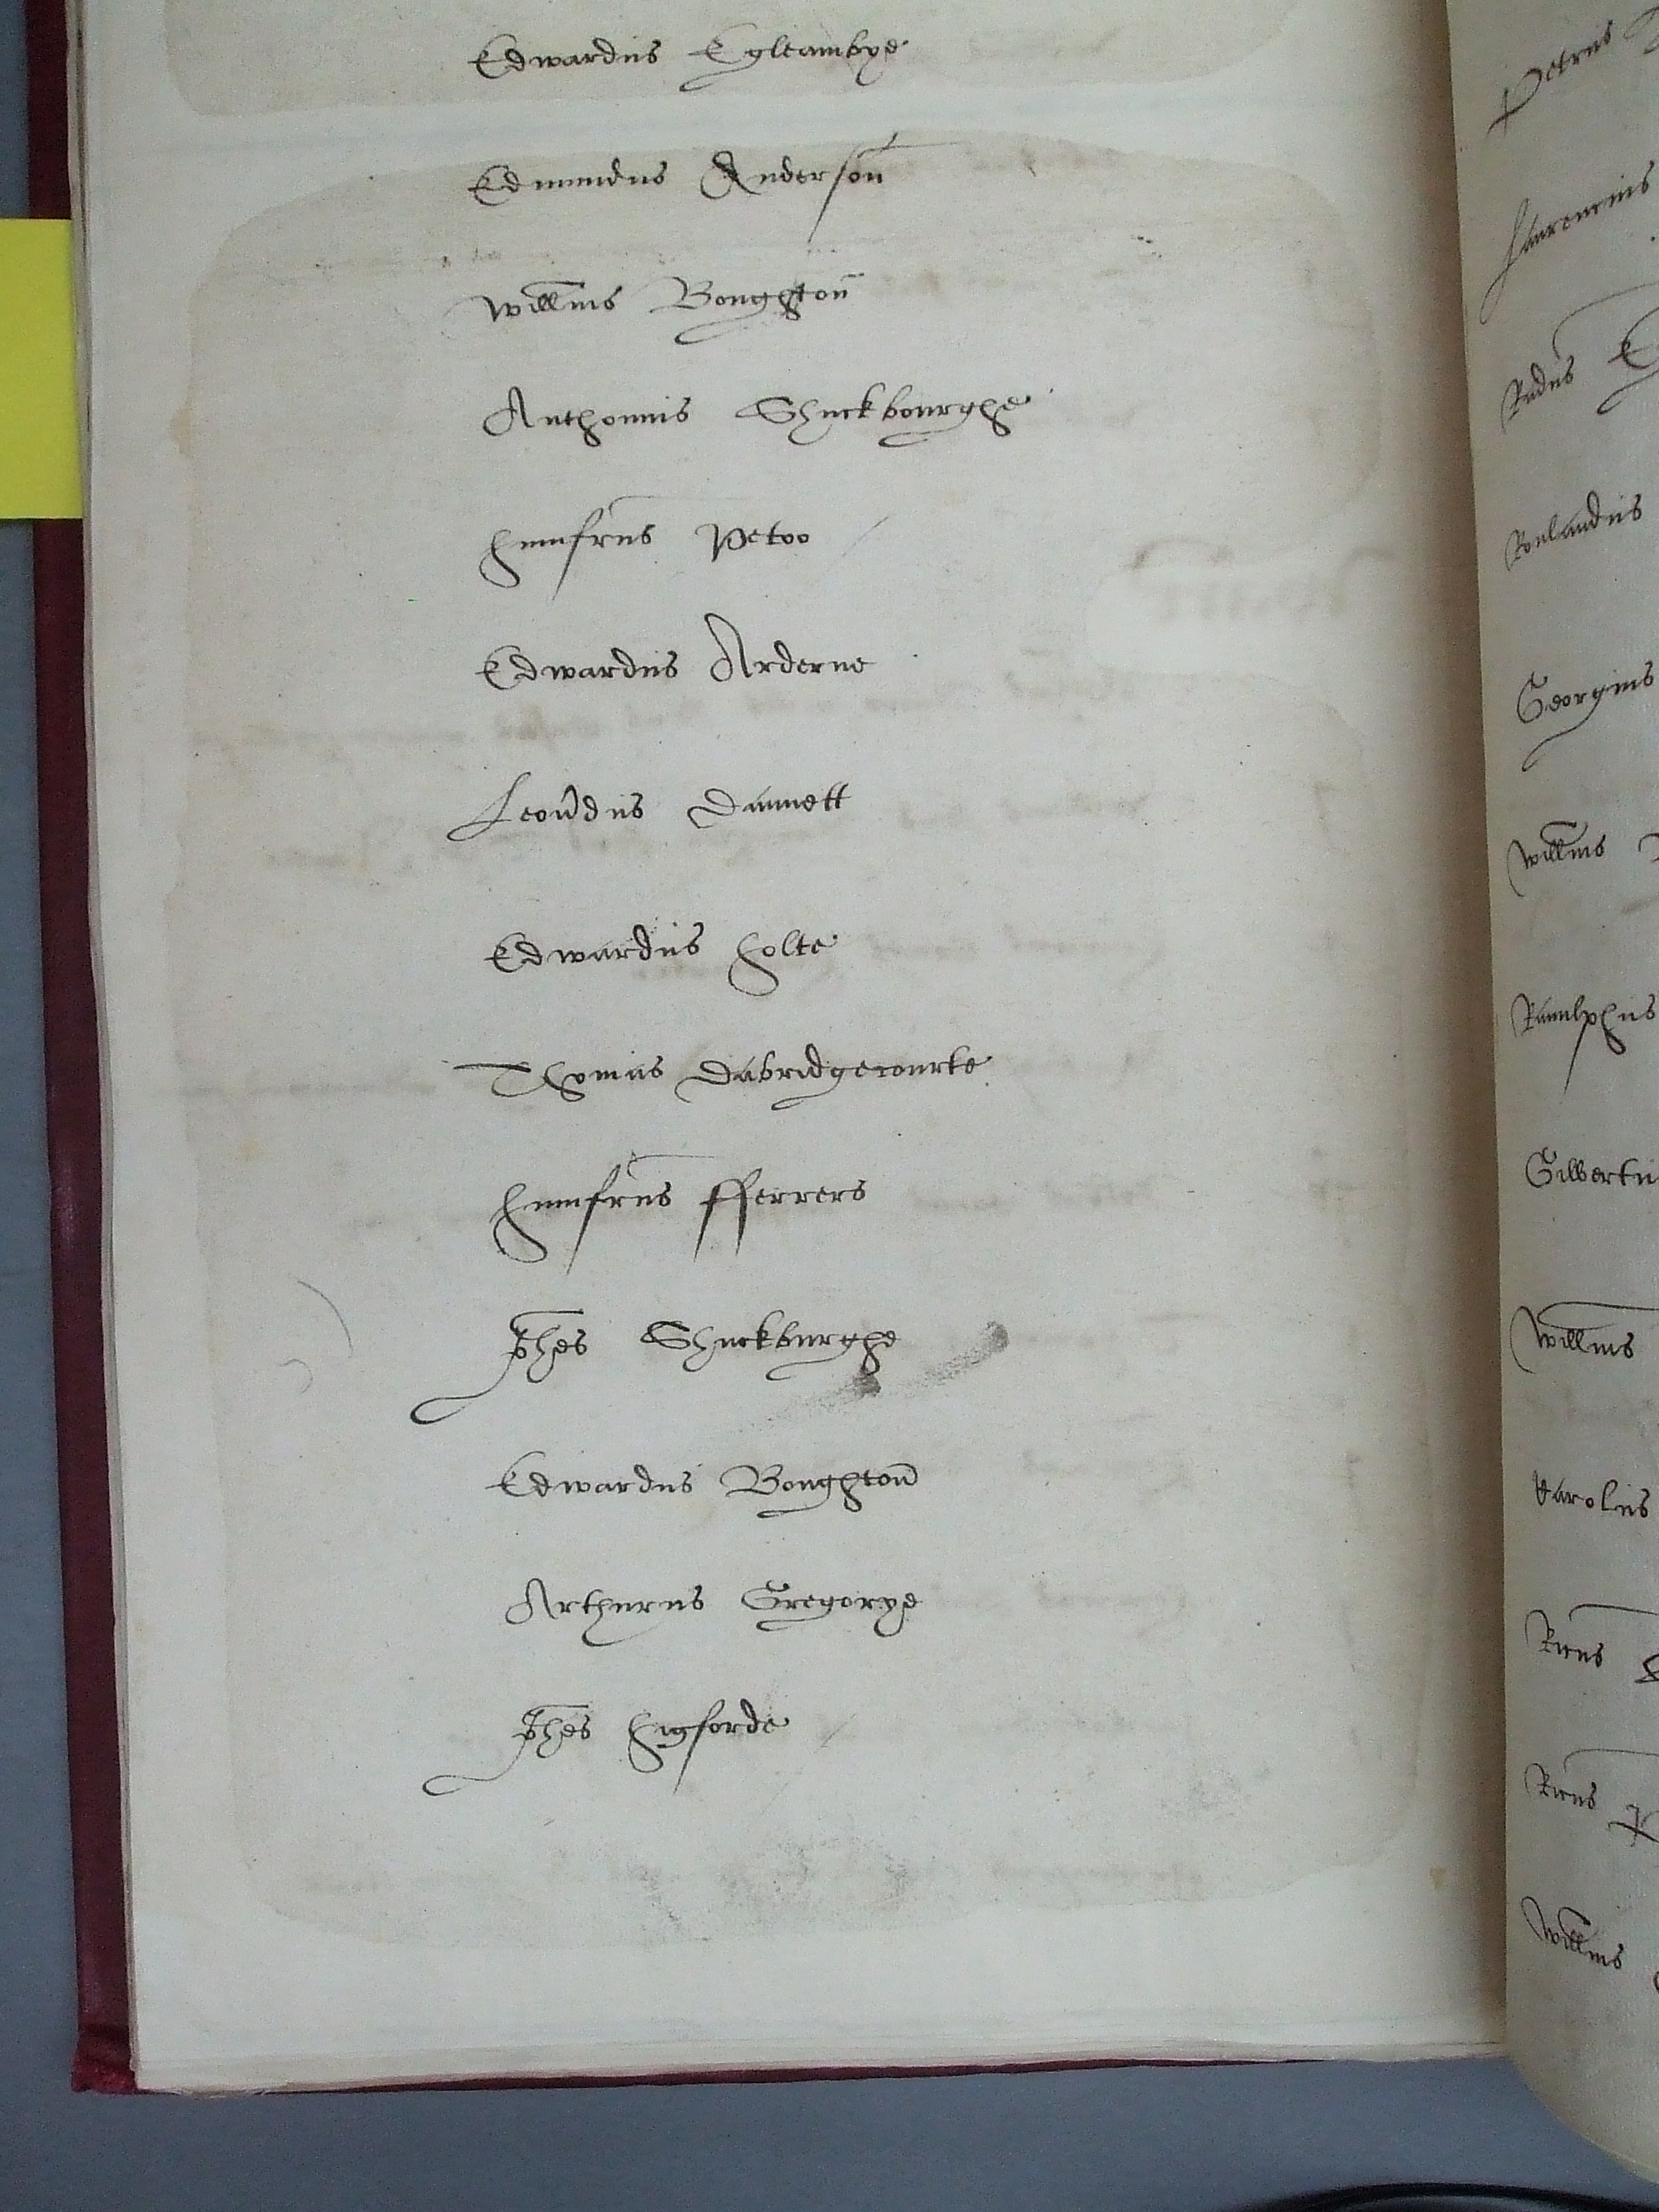 Edwardus Egleambye
Edmundus Anderson
Willms Boughton
Anthonius Shuckbourghe
Humfrus Petoo
Edwardus Arderne
Leondus Dannett
Edwardus Holte
Thomas Dabridgecourte
Humfrus fferrers
Johes Shuckburghe
Edwardus Boughton
Arthurus Gregorye
Johes Higforde
Petrus
Laurencius
Radus
Roulandus
Georgius
Willms
Ranulphus
Gilbertu
Willms
Karolus
Ricus
Ricus
Willms